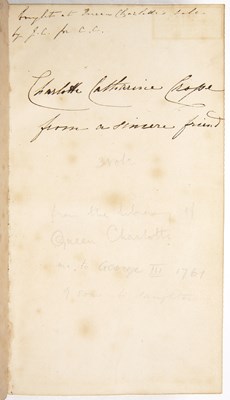 bought at Queen Charlotte's sale
by J.C. for C.C.
Charlotte Catharine Cope
from a sincere friend
Queen Charlotte
George III 1761